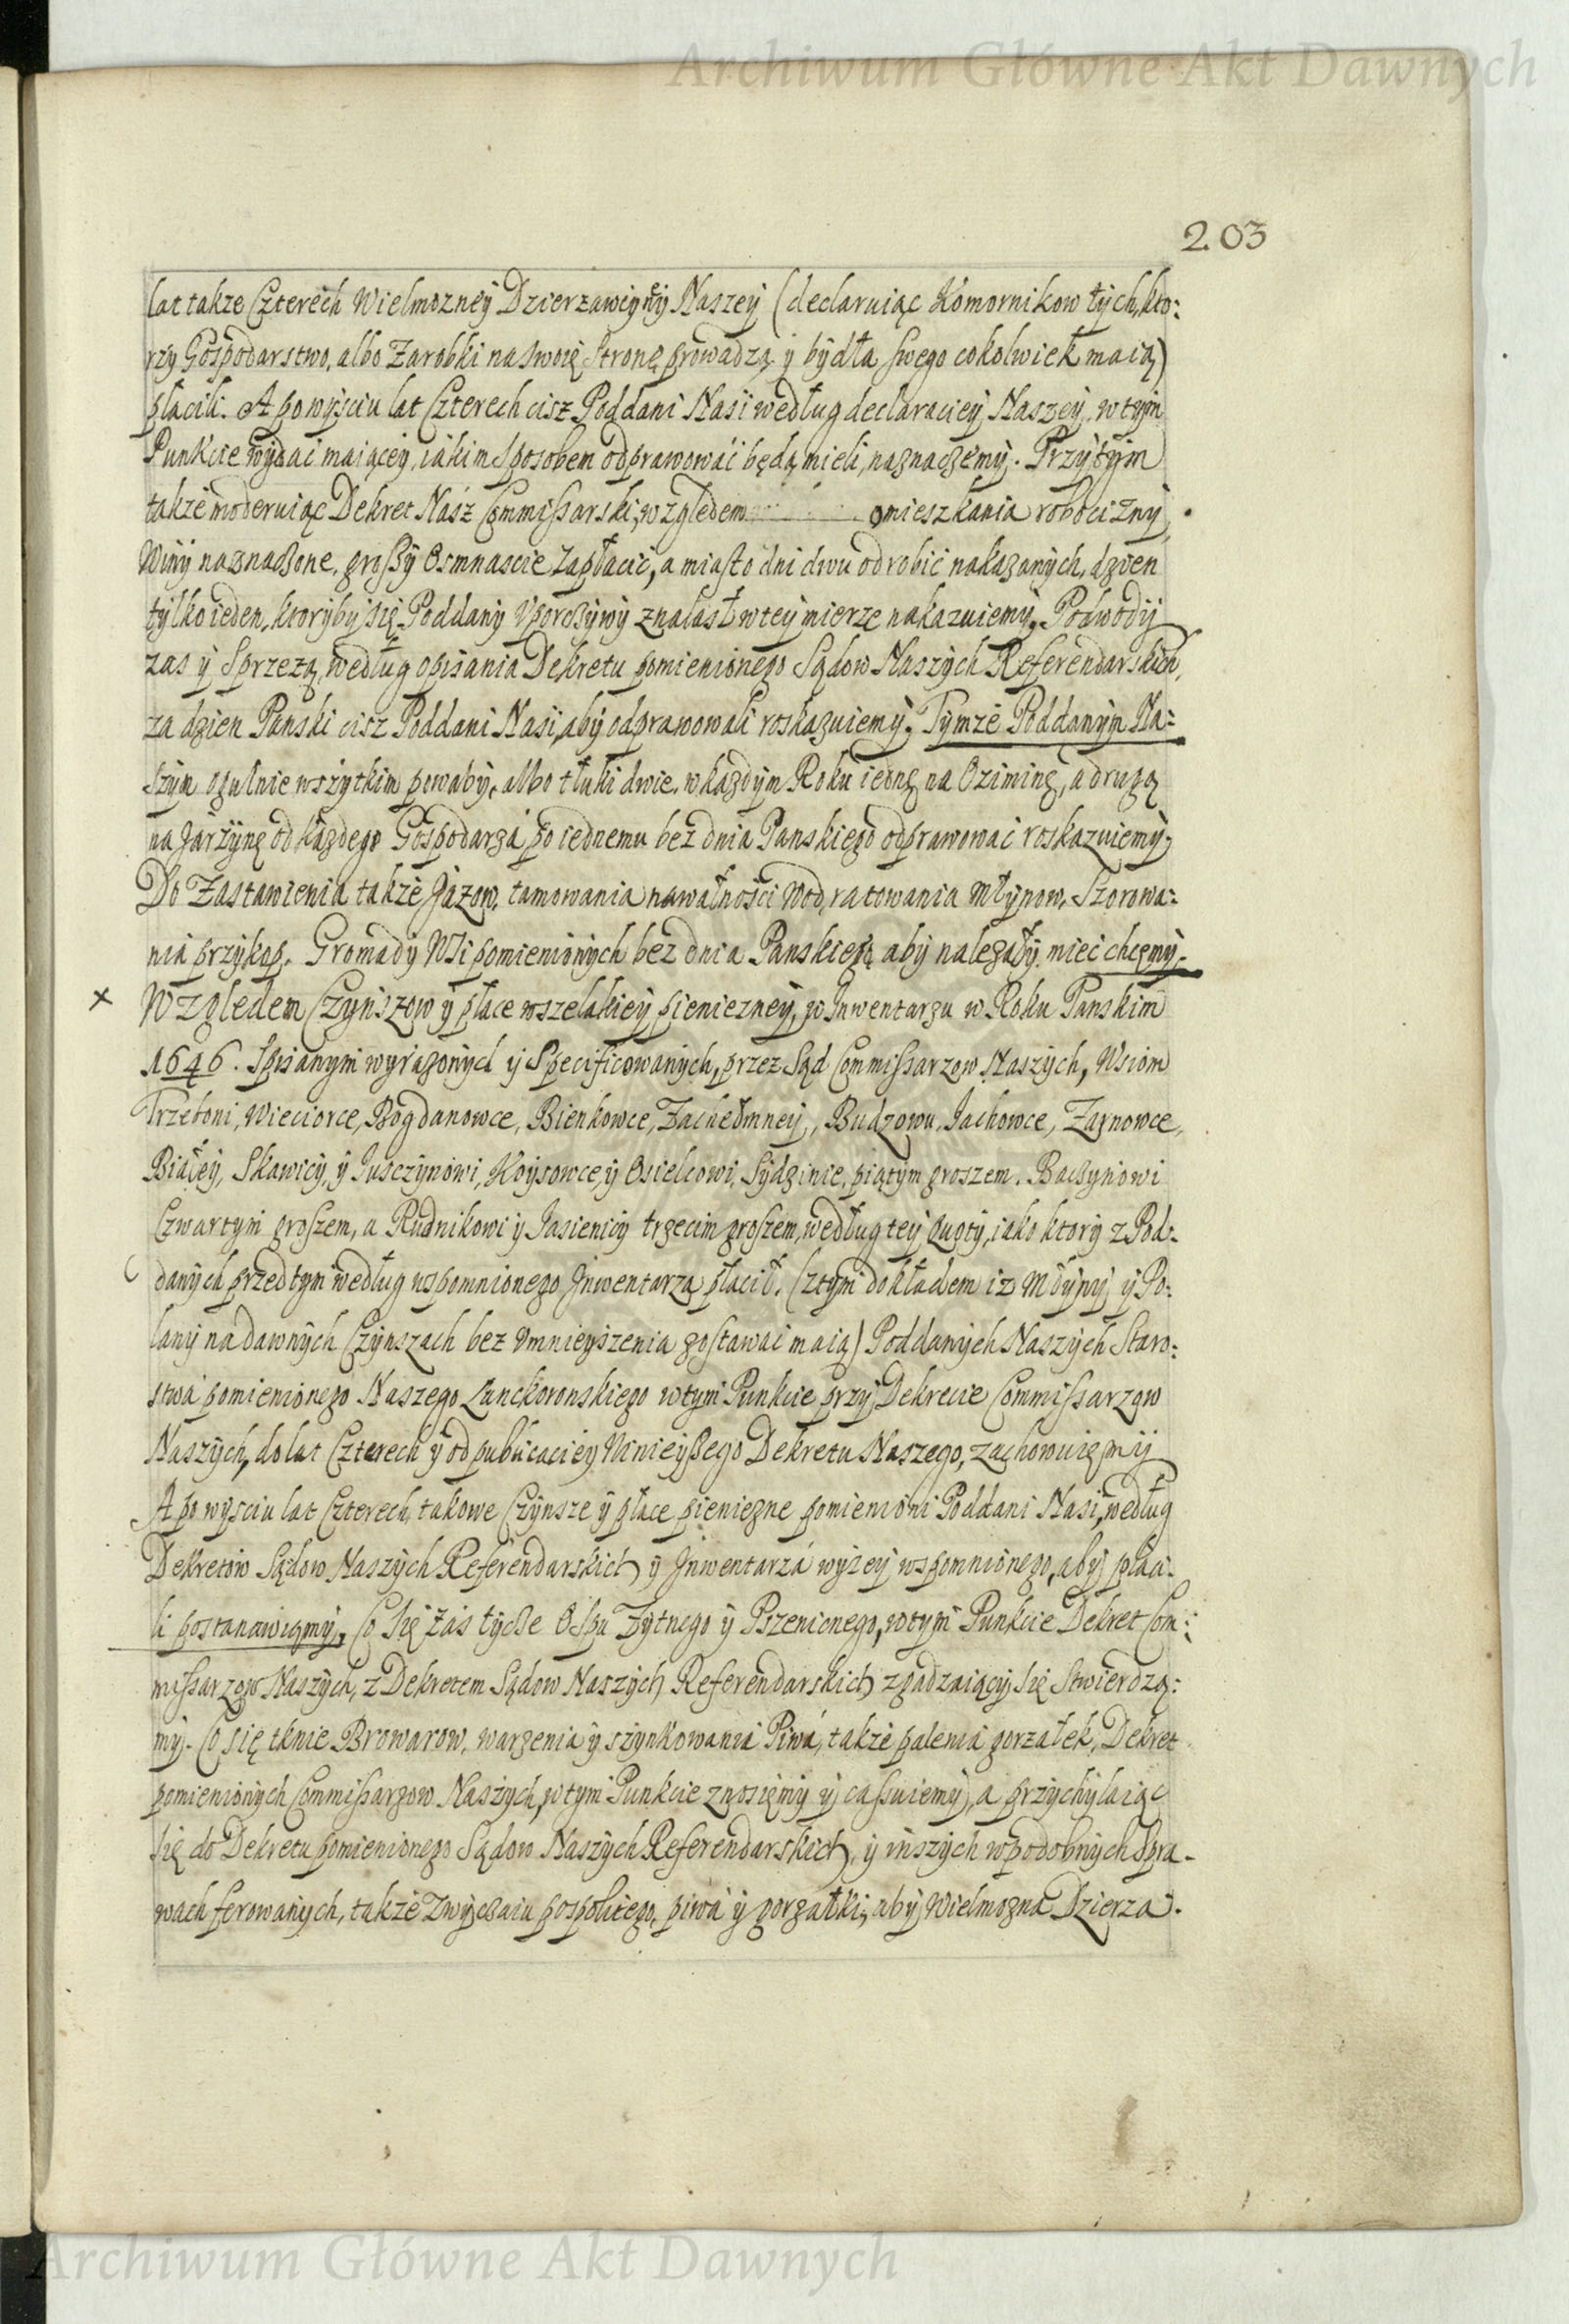 Archiwum Główne Akt Dawnych
203
lat takze Czterech Wielmozney Dzierzawczyney Naszey (declaruiąc Komornikow tych, kto:
rzy Gospodarstwo, albo Zarobki na swoię stronę prowadzą y bydła swego cokolwiek maią)
płacili. A po wyściu lat Czterech cisz Poddani Nasi według declaraciey Naszey, w tym
Punkcie wydać maiącey, iakim sposobem odprawować będą mieli, naznaczemy. Przytym
takze moderuiąc Dekret Nasz Commissarski, względem omieszkania robocizny,
Winy naznaczone, groszy Osmnascie zapłacić, a miasto dni dwu odrobić nakazanych, dzien
tylko ieden, ktoryby się Poddany Uporczywy znalasł w tey mierze nakazuiemy. Podwody
zas y Sprzężą, według opisania Dekretu pomienionego Sądow Naszych Referendarskich,
za dzien Panski cisz Poddani Nasi, aby odprawowali roskazuiemy, Tymze Poddanym Na:
szym ogulnie wszytkim powaby, albo tłuki dwie, w kazdym Roku iedną na Oziminę, a drugą
na Jarzynę od kazdego Gospodarza po iednemu bez dnia Panskiego odprawować roskazuiemy,
Do Zastawienia takze Jazow, tamowania nawałności Wod, ratowania Młynow, Szorowa:
nia przykop, Gromady Wsi pomienionych bez dnia Panskiego aby nalezały, mieć chcemy.
x Względem Czynszow y płace wszelakiey pienięzney, w Inwentarzu w Roku Panskim
1646. Spisanym wyrazonych y Specificowanych, przez Sąd Commissarzow Naszych, Wsiom
Trzeboni, Wieciorce, Bogdanowce, Bienkowce, Zachełmney, Budzowu, Jachowce, Zarnowce,
Białey, Skawicy, y Juszczynowi, Koysowce, y Osielcowi, Sydzinie, piątym groszem. Baczynowi
Czwartym groszem, a Rudnikowi y Jasienicy trzecim groszem, według tey Quoty, iako ktory z Pod:
danych przedtym według wspomnionego Inwentarza płacił. (z tym dokładem iz Młyny y Po:
lany na dawnych Czynszach bez Umnieyszenia zostawać maią) Poddanych Naszych Staro:
stwa pomienionego Naszego Lanckoronskiego w tym Punkcie przy Dekrecie Commissarzow
Naszych, do lat Czterech y od publicaciey Ninieyszego Dekretu Naszego, zachowuiemy
A po wyściu lat Czterech, takowe Czynsze y płace pieniezne pomienioni Poddani Nasi, według
Dekretow Sądow Naszych Referendarskich y Inwentarza wyzey wspomnionego, aby płaci:
li postanawiamy, Co się zas tycze Ospu Zytnego y Pszenicnego, w tym Punkcie Dekret Com:
missarzow Naszych, z Dekretem Sądow Naszych Referendarskich zgadzaiący się Stwierdza:
my. Co się tknie Browarow, warzenia y szynkowania Piwa, takze palenia gorzałek, Dekret
pomienionych Commissarzow Naszych, w tym Punkcie znosiemy y cassuiemy, a przychylaiąc
się do Dekretu pomienionego Sądow Naszych Referendarskich, y inszych w podobnych Spra-
wach ferowanych, takze Zwyczaiu pospolitego, piwa y gorzałki, aby Wielmozna Dzierza-
Archiwum Główne Akt Dawnych